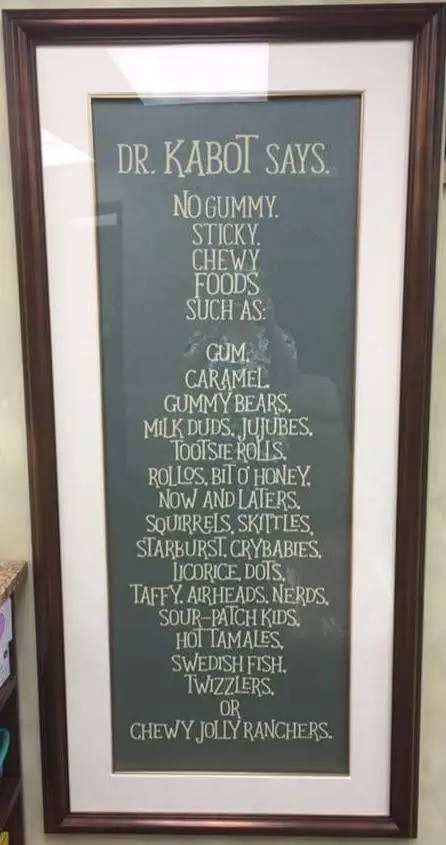 DR. KABOT SAYS.
NO GUMMY.
STICKY.
CHEWY
FOODS
SUCH AS:
GUM.
CARAMEL.
GUMMY BEARS.
MILK DUDS. JUJUBES.
TOOTSIE ROLLS.
ROLLOS. BIT O' HONEY.
NOW AND LATERS.
SQUIRRELS. SKITTLES.
STARBURST. CRYBABIES.
LICORICE. DOTS.
TAFFY. AIRHEADS. NERDS.
SOUR-PATCH KIDS.
HOT TAMALES.
SWEDISH FISH.
TWIZZLERS.
OR
CHEWY JOLLY RANCHERS.